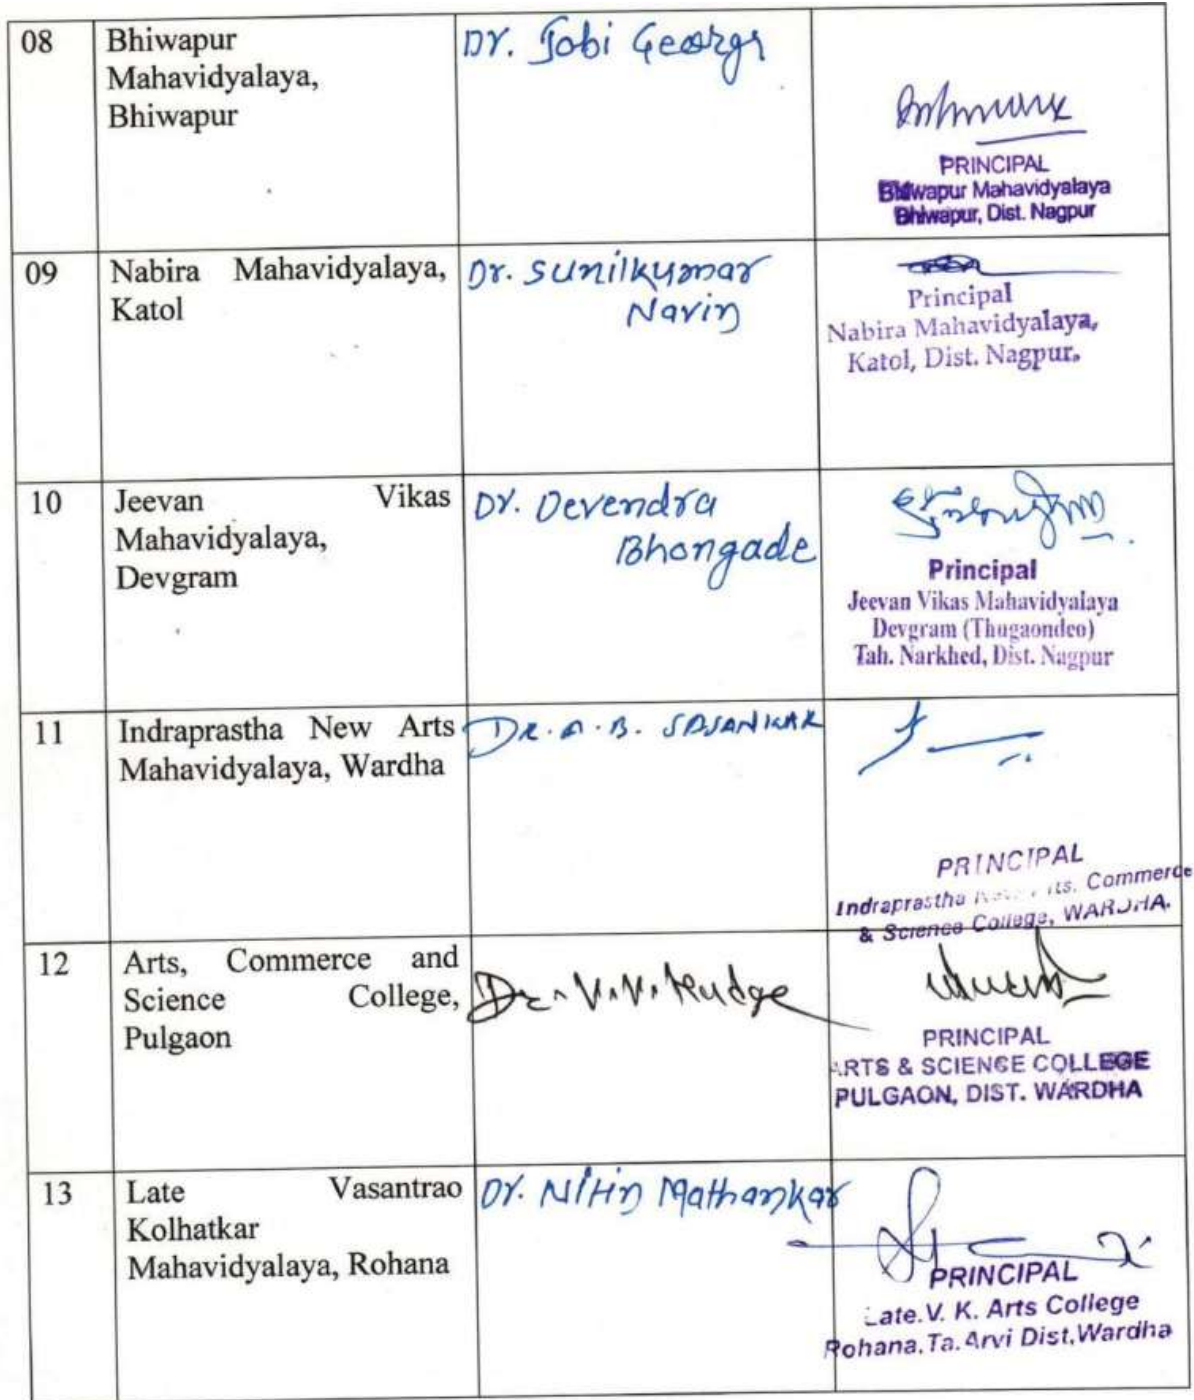 08
Bhiwapur
Mahavidyalaya,
Bhiwapur
Dr. Jobi George
PRINCIPAL
Bhiwapur Mahavidyalaya
Bhiwapur, Dist. Nagpur
09
Nabira Mahavidyalaya,
Katol
Dr. Sunilkumar
Navin
Principal
Nabira Mahavidyalaya,
Katol, Dist. Nagpur.
10
Jeevan Vikas
Mahavidyalaya,
Devgram
Dr. Devendra
Bhongade
Principal
Jeevan Vikas Mahavidyalaya
Devgram (Thugaondeo)
Tah. Narkhed, Dist. Nagpur
11
Indraprastha New Arts
Mahavidyalaya, Wardha
DR. A. B. SASANKAR
PRINCIPAL
Indraprastha New Arts, Commerce
& Science College, WARDHA.
12
Arts, Commerce and
Science College,
Pulgaon
Dr. V. V.
PRINCIPAL
ARTS & SCIENCE COLLEGE
PULGAON, DIST. WARDHA
13
Late Vasantrao
Kolhatkar
Mahavidyalaya, Rohana
Dr. Nitin Mathankar
PRINCIPAL
Late.V. K. Arts College
Rohana.Ta.Arvi Dist,Wardha